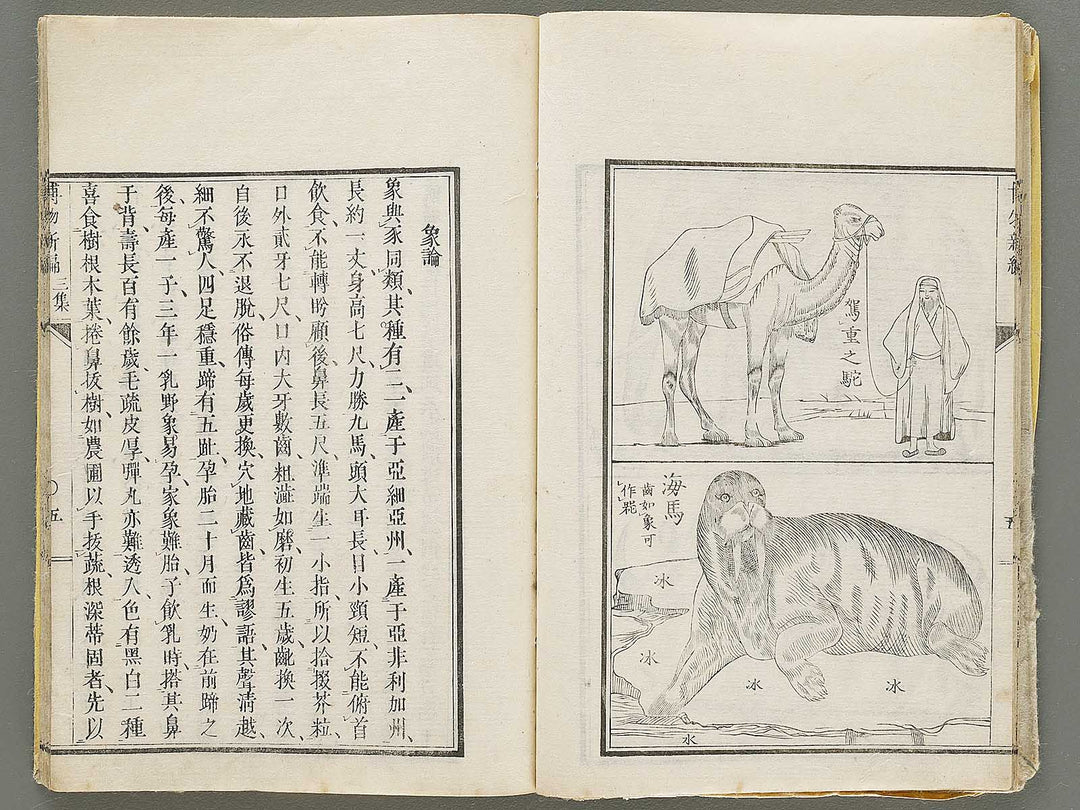 駕重之駝
海馬
齒如象可
作器
冰
冰
冰
冰
水
五
象論
象與豕同類、其種有二、一產于亞細亞州、一產于亞非利加州、
長約一丈、身高七尺、力勝九馬、頭大耳長、目小頸短、不能俯首
飲食、不能轉盻顧後、鼻長五尺、準端生一小指、所以拾掇芥粒、
口外貳牙七尺、口內大牙數齒、粗澁如磨、初生五歲、齔換一次、
自後永不退脫、俗傳每歲更換、穴地藏齒、皆爲謬語、其聲清越、
細不驚人、四足穩重、蹄有五趾、孕胎二十月而生、奶在前蹄之
後、每產一子、三年一乳、野象易孕、家象難胎、子飲乳時、搭其鼻
于背、壽長百有餘歲、毛疏皮厚、彈丸亦難透入、色有黑白二種
喜食樹根木葉、捲鼻拔樹、如農圃以手拔蔬、根深蒂固者、先以
博物新編
三集
〇五